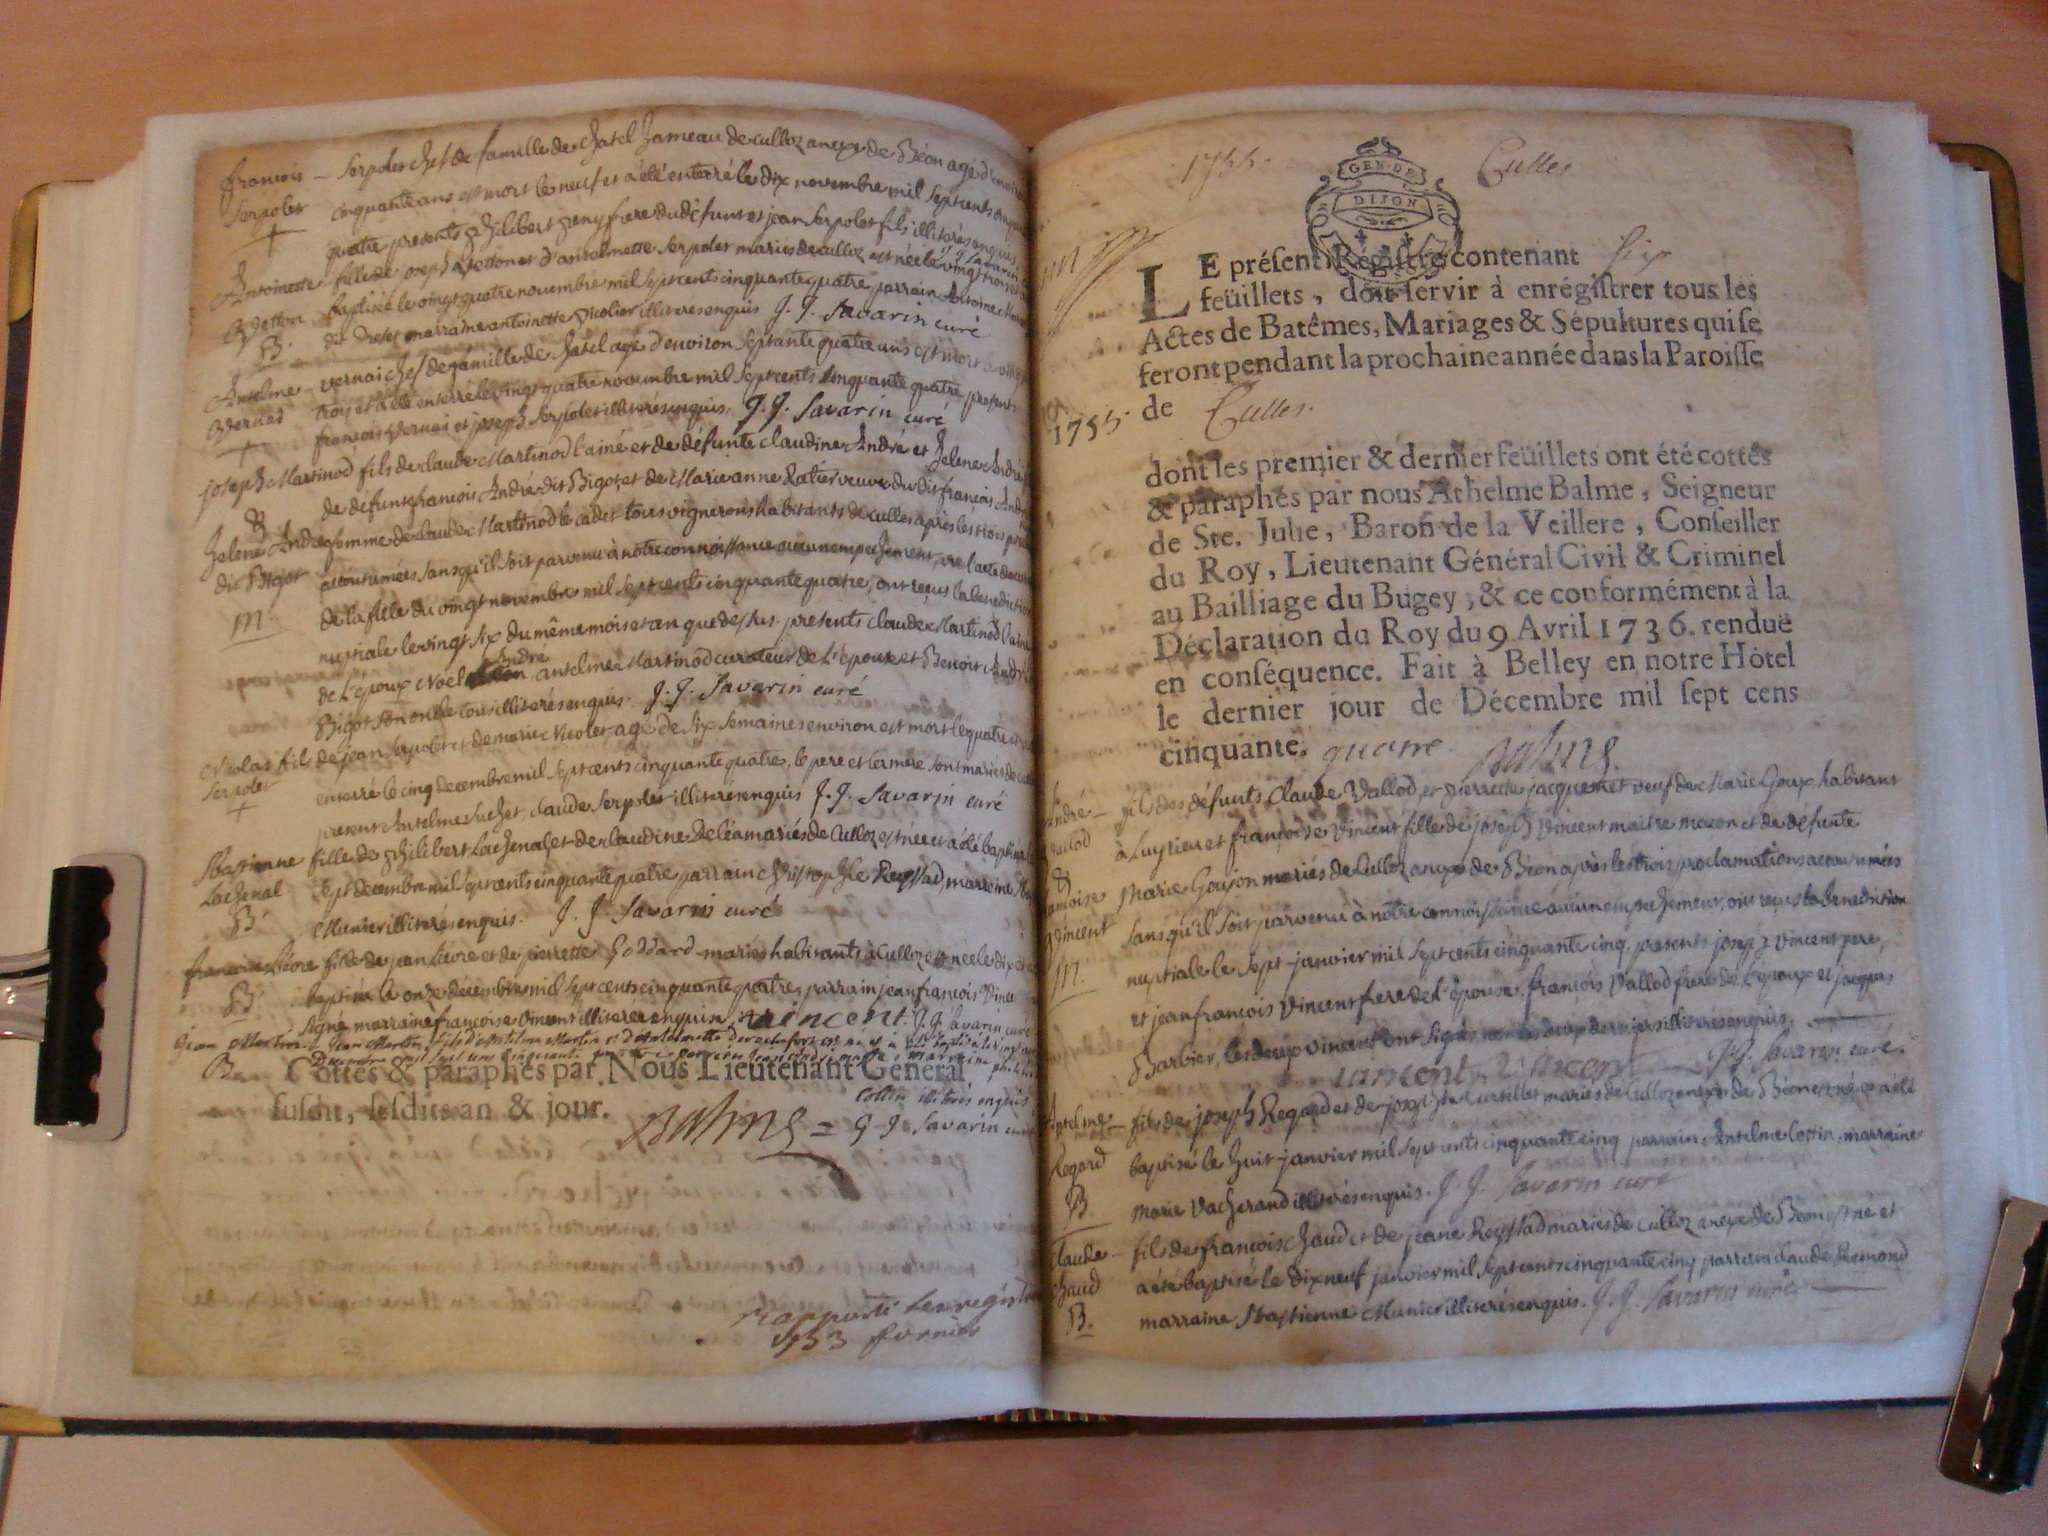 françois – Serpolet chef de famille de chatel hameau de culloz anexe de Béon agé d'environ
Serpolet cinquante ans est mort le neuf et a été enterré le dix novembre mil sept cents cinquante
quatre presents philibert frere du défunt et jean Serpolet fils illiterés enquis
J. J. Savarin
Antoinette fille de joseph et d'anselmette Serpolet mariés de culloz est née le vingt trois
baptisée le vingt quatre novembre mil sept cents cinquante quatre parrain Antoine
B. marraine antoinette Nicolier illiterés enquis J. J. Savarin curé
Anselme – vernai chef de famille de chatel agé d'environ septante quatre ans est mort
vernai trois et a été enterré le vingt quatre novembre mil sept cents cinquante quatre, presents
françois vernai et joseph Serpolet illiterés enquis. J. J. Savarin curé
joseph Martinod fils de claude Martinod l'ainé et de défunte claudine André et helene André
& de défunt françois André dit Bigot, et de Marie anne Ratier veuve du dit françois André
helene André femme de claude Martinod le cadet tous vignerons habitants de culles après les trois
dit Bigot accoutumées sans qu'il soit parvenu à notre connoissance aucun empechement, vu l'acte
m. de la fille du vingt novembre mil sept cents cinquante quatre, ont reçus la benediction
nuptiale le vingt six du même mois et an que dessus. presents claude Martinod l'ainé
de l'epoux Noel André anselme Martinod curateur de l'epoux et Benoit André
Bigot son oncle tous illiterés enquis. J. J. Savarin curé
Nicolas fils de jean Serpolet et de marie Nicolet agé de six semaines environ est mort le quatre et
Serpolet enterré le cinq decembre mil sept cents cinquante quatre, le pere et la mere sont mariés de
present Anselme Suchet, claude Serpolet illiterés enquis J. J. Savarin curé
Sbastienne fille de philibert Lachenal et de claudine Deléa mariés de Culloz est née et a été baptisée
Lachenal sept decembre mil sept cents cinquante quatre parrain christophle Reyssad, marraine
B. Munier illiterés enquis. J. J. Savarin curé
françoise Lievre fille de jean Lievre et de pierrette Goddard mariés habitants à Culloz est née le dix et
B. baptisée le onze decembre mil sept cents cinquante quatre, parrain jean françois Vincent
signé marraine françoise vincent illiterée enquise, vincent. J. J. Savarin curé
jean Martin – jean Martin, fils d'Anselme Martin et d'Antoinette
B
Cottés & paraphés par Nous Lieutenant Général
susdit, lesdits an & jour.
Cottin illiterés enquis
Balme = J. J. Savarin curé
rapporté
fornier
1755. Culles
GEN. DE
DIJON
LE présent Régistre contenant six
feüillets, doit servir à enrégistrer tous les
Actes de Batêmes, Mariages & Sépultures qui se
feront pendant la prochaine année dans la Paroisse
1755. de Culles.
dont les premier & dernier feüillets ont été cottés
& paraphés par nous Athelme Balme, Seigneur
de Ste. Julie, Baron de la Veillere, Conseiller
du Roy, Lieutenant Général Civil & Criminel
au Bailliage du Bugey ; & ce conformément à la
Déclaration du Roy du 9 Avril 1736. renduë
en conséquence. Fait à Belley en notre Hôtel
le dernier jour de Décembre mil sept cens
cinquante. quatre Balme.
André – fils des défunts Claude Vallod, et pierrette jacquemet veuf de Marie Goux habitant
vallod à Luyrieu et françoise Vincent fille de joseph Vincent maitre mason et de défunte
& Marie Goujon mariés de Culloz anexe de Béon après les trois proclamations accoutumées
françoise sans qu'il soit parvenu à notre connoissance aucun empechement, ont reçus la benediction
vincent nuptiale le sept janvier mil sept cents cinquante cinq, presents joseph vincent pere,
m. et jean françois Vincent frere de l'epouse, françois Vallod frere de l'epoux et jacques
Barbier, les deux vincent ont signés non les deux derniers illiterés enquis.
vincent Vincent J. J. Savarin curé.
Anselme – fils de joseph Regard et de josephte Curtillet mariés de Culloz anexe de Béon est né et a été
Regard baptisé le huit janvier mil sept cents cinquante cinq parrain Anselme Cottin, marraine
B. marie Vacherand illiterés enquis. J. J. Savarin curé
Claude – fils de françois chaud et de jeane Reyssad mariés de Culloz anexe de Béon est né et
chaud a été baptisé le dix neuf janvier mil sept cents cinquante cinq parrain claude Remond
B. marraine Sbastienne Munier illiterés enquis. J. J. Savarin curé